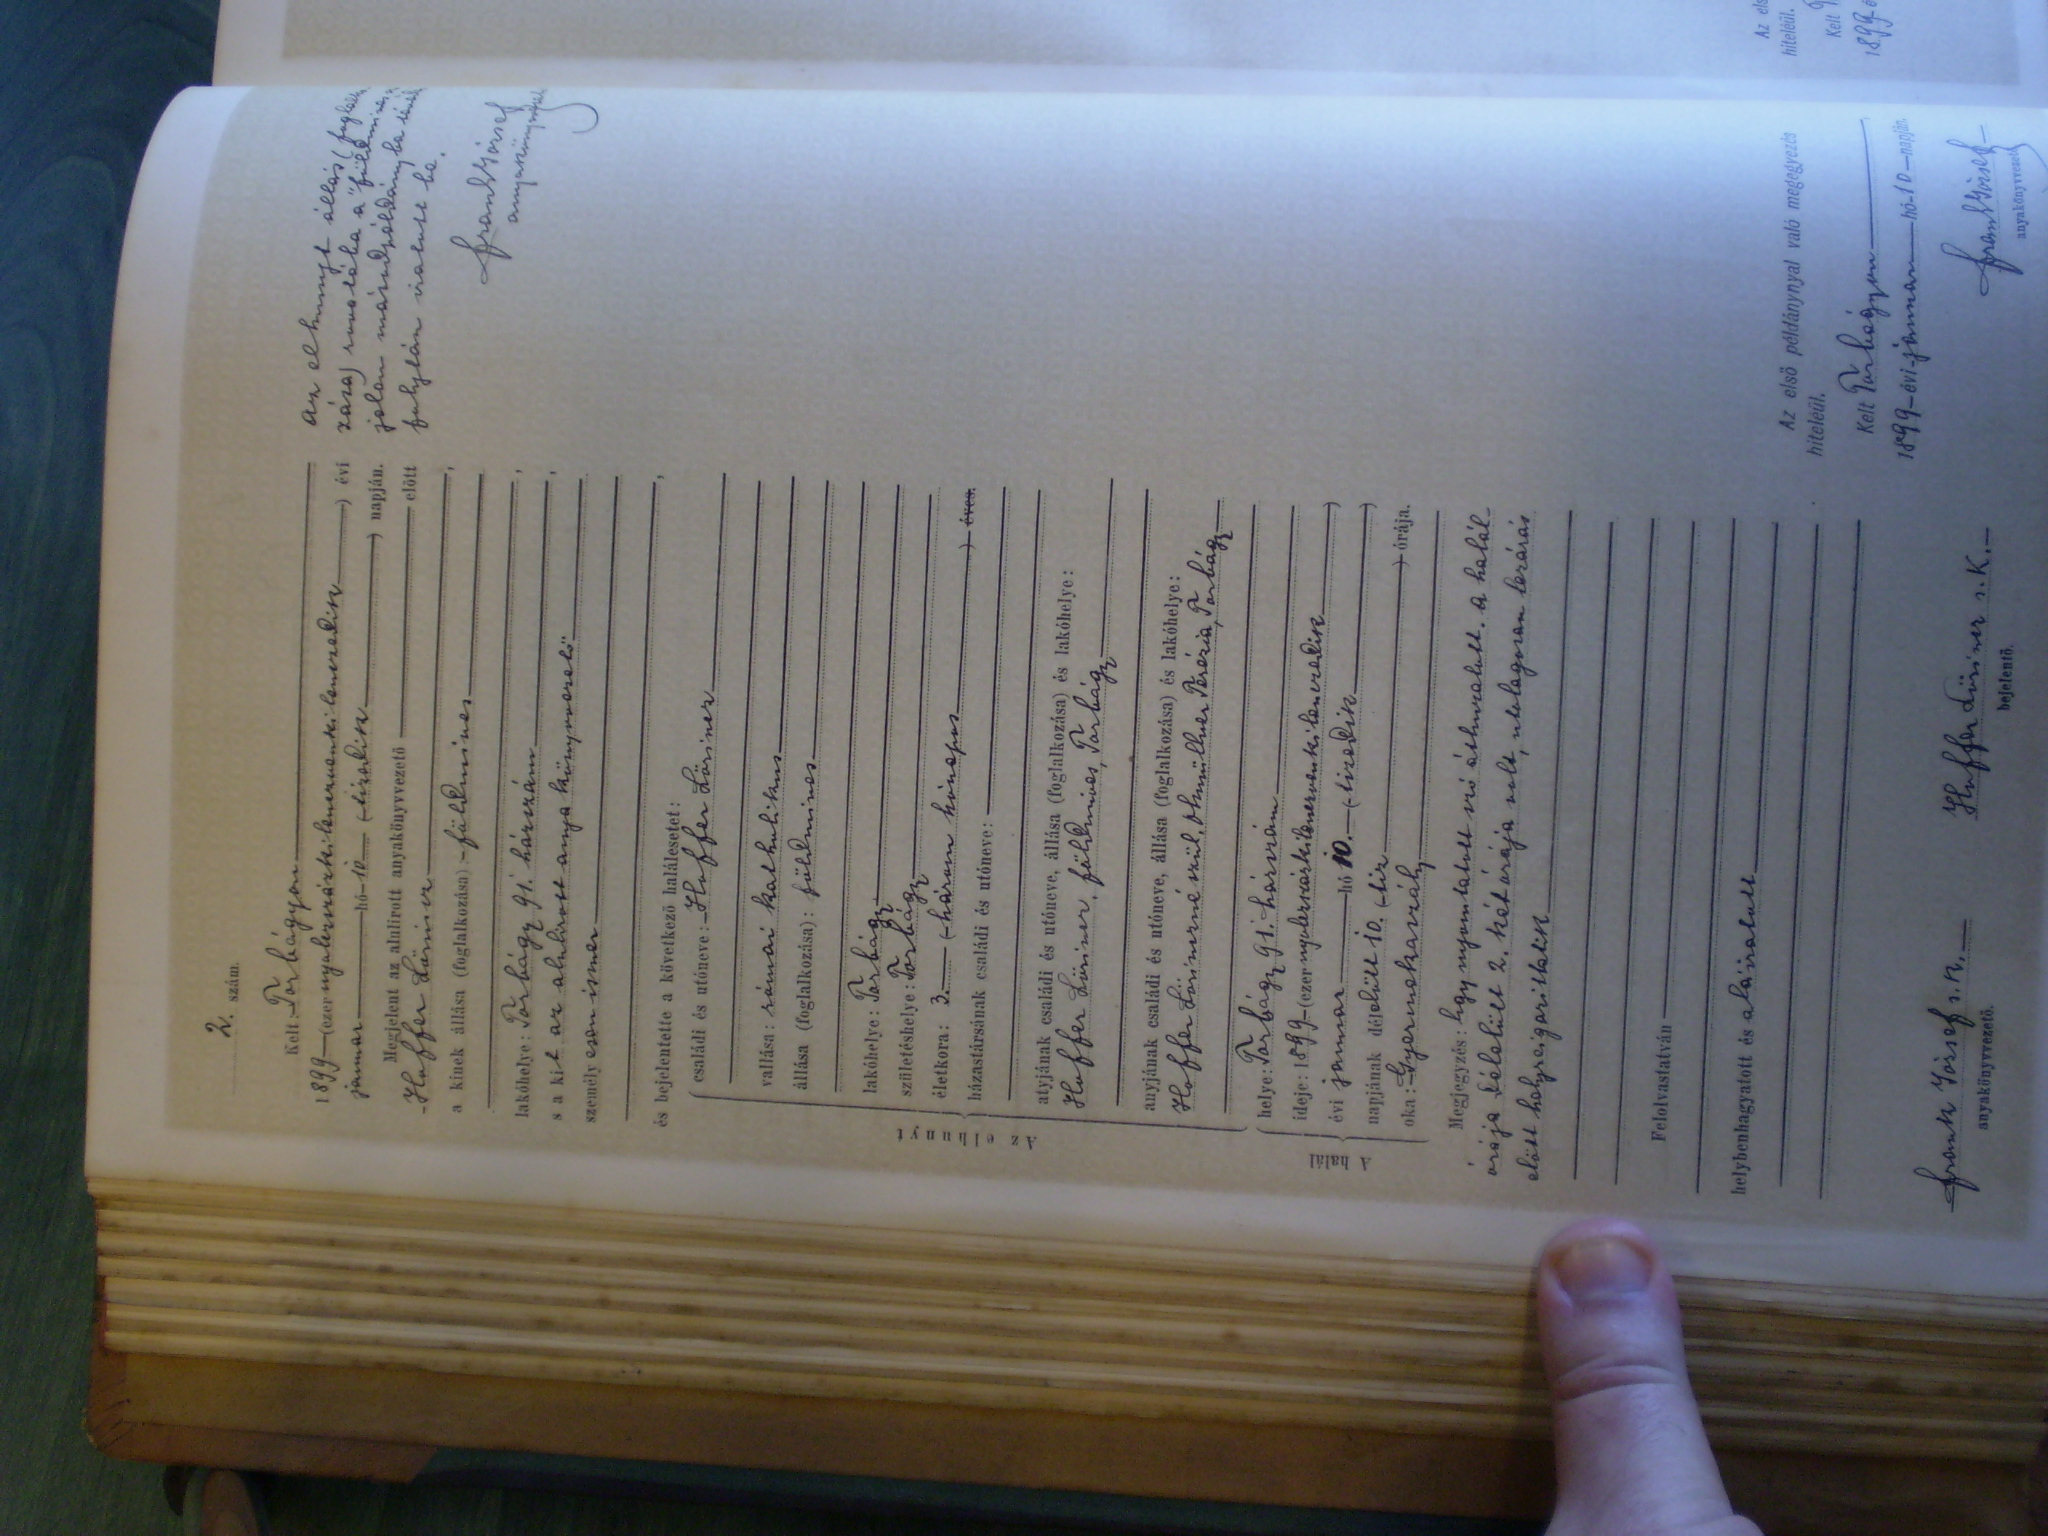 2. szám.
Kelt: Torbágyon
1899 (ezernyolczszázkilenczvenkilenczedik) évi
januar hó 10 (tizedik) napján.
Megjelent az alulirott anyakönyvvezető előtt
Hoffer Lőrincz
a kinek állása (foglalkozása): földmives,
lakóhelye: Torbágy 91. házszám,
s a kit az alulirott anyakönyvvezető
személyesen ismer
és bejelentette a következő halálesetet:
Az elhunyt
családi és utóneve: Hoffer Lőrincz
vallása: római katholikus
állása (foglalkozása): földmives
lakóhelye: Torbágy
születéshelye: Torbágy
életkora: 3. (három hónapos) éves.
házastársának családi és utóneve:
atyjának családi és utóneve, állása (foglalkozása) és lakóhelye:
Hoffer Lőrincz, földmives, Torbágy
anyjának családi és utóneve, állása (foglalkozása) és lakóhelye:
Hoffer Lőrinczné szül. Terézia, Torbágy
A halál
helye: Torbágy 91. házszám
ideje: 1899 (ezernyolczszázkilenczvenkilenczedik)
évi januar hó 10. (tizedik)
napjának délelőtt 10. (tiz) órája.
oka: Gyermekaszály
Megjegyzés: hogy nyomtatott szó áthuzatott. a halál-
órája délelőtt 2. két órája volt, utólagosan lezárás
előtt helyreigazittatik
Felolvastatván
helybenhagyatott és aláiratott
Frank József s. k.
anyakönyvvezető.
Hoffer Lőrincz s. k.
bejelentő.
az elhunyt állás (foglal-
kozása) rovatába a "földmives"
jelen másodpéldányba
folytán iratott be.
Frank József
Az első példánynyal való megegyezés
hiteléül.
Kelt Torbágyon
1899 évi januar hó 10 napján.
Frank József
anyakönyvvezető
Az els
hiteléül.
Kelt T
1899 é